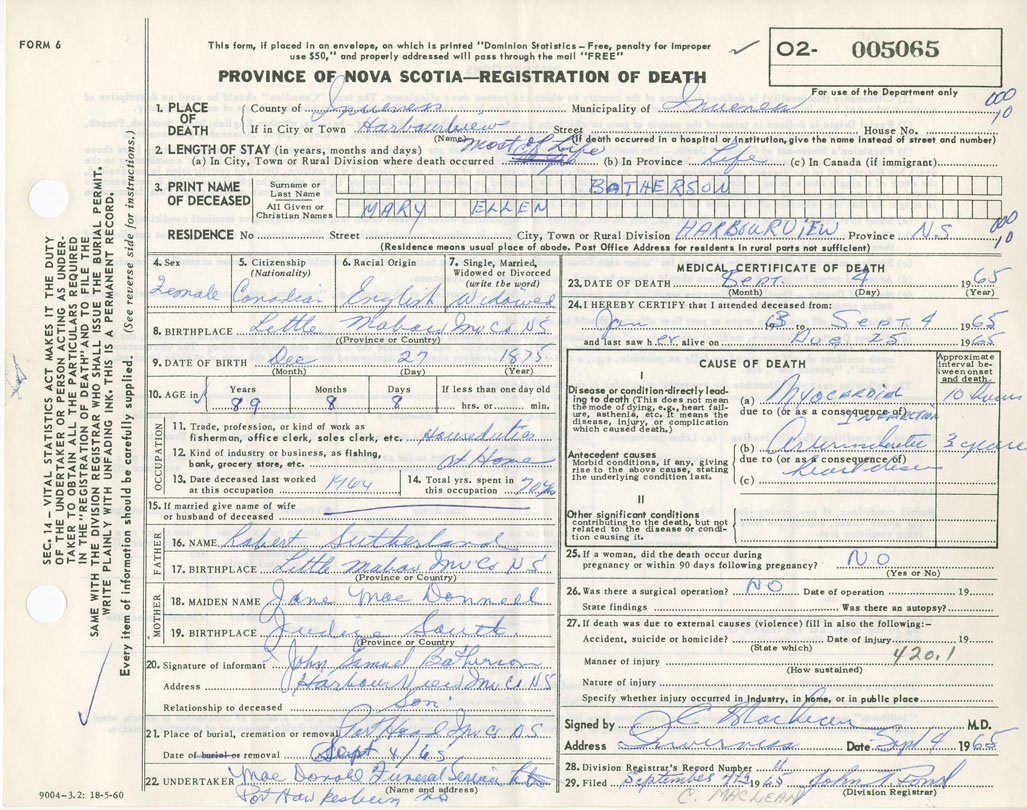 FORM 6
This form, if placed in an envelope, on which is printed "Dominion Statistics – Free, penalty for improper
use $50," and properly addressed will pass through the mail "FREE"
PROVINCE OF NOVA SCOTIA—REGISTRATION OF DEATH
02- 005065
For use of the Department only
000
10
1. PLACE OF DEATH
County of Inverness Municipality of Inverness
If in City or Town Harbourview Street House No.
(Name) (If death occurred in a hospital or institution, give the name instead of street and number)
2. LENGTH OF STAY (in years, months and days) most of Life
(a) In City, Town or Rural Division where death occurred (b) In Province Life (c) In Canada (if immigrant)
3. PRINT NAME OF DECEASED
Surname or Last Name BATHERSON
All Given or Christian Names MARY ELLEN
000
10
RESIDENCE No Street City, Town or Rural Division HARBOURVIEW Province N.S
(Residence means usual place of abode. Post Office Address for residents in rural parts not sufficient)
4. Sex
Female
5. Citizenship (Nationality)
Canadian
6. Racial Origin
English
7. Single, Married, Widowed or Divorced (write the word)
Widowed
8. BIRTHPLACE Little Mabou Inv Co NS
(Province or Country)
9. DATE OF BIRTH Dec 27 1875
(Month) (Day) (Year)
10. AGE in
Years 89 Months 8 Days 8 If less than one day old
hrs. or min.
OCCUPATION
11. Trade, profession, or kind of work as
fisherman, office clerk, sales clerk, etc. Houseduties
12. Kind of industry or business, as fishing,
bank, grocery store, etc. at Home
13. Date deceased last worked
at this occupation 1964
14. Total yrs. spent in
this occupation 70 yrs
15. If married give name of wife
or husband of deceased
FATHER
16. NAME Robert Sutherland
17. BIRTHPLACE Little Mabou Inv Co NS
(Province or Country)
MOTHER
18. MAIDEN NAME Jane Mac Donnell
19. BIRTHPLACE Judique South
(Province or Country)
20. Signature of informant John Samuel Batherson
Address Harbour View Inv Co NS
Relationship to deceased Son
21. Place of burial, cremation or removal Port Hood Inv Co NS
Date of burial or removal Sept 4/65
22. UNDERTAKER Mac Donald Funeral Service
(Name and address)
Port Hawkesbury NS
9004-3.2: 18-5-60
MEDICAL CERTIFICATE OF DEATH
23. DATE OF DEATH SEPT. 4 1965
(Month) (Day) (Year)
24. I HEREBY CERTIFY that I attended deceased from:
Jan 1963 to SEPT. 4 1965
and last saw her alive on Aug 25 1965
CAUSE OF DEATH
Approximate interval between onset and death
I
Disease or condition directly leading to death (This does not mean the mode of dying, e.g., heart failure, asthenia, etc. It means the disease, injury, or complication which caused death.)
(a) Myocardial 10 hours
due to (or as a consequence of)
INFARCTION
Antecedent causes
Morbid conditions, if any, giving rise to the above cause, stating the underlying condition last.
(b) 3 years
due to (or as a consequence of)
heart disease
(c)
II
Other significant conditions
contributing to the death, but not related to the disease or condition causing it.
25. If a woman, did the death occur during
pregnancy or within 90 days following pregnancy? NO
(Yes or No)
26. Was there a surgical operation? NO Date of operation 19
State findings Was there an autopsy?
27. If death was due to external causes (violence) fill in also the following:–
Accident, suicide or homicide? Date of injury 19
(State which) 420.1
Manner of injury
(How sustained)
Nature of injury
Specify whether injury occurred in industry, in home, or in public place
Signed by C Maclean M.D.
Address Inverness Date Sept 4 1965
28. Division Registrar's Record Number 11
29. Filed September 7th 1965
(Division Registrar)
C. MACLEAN
SEC. 14 – VITAL STATISTICS ACT MAKES IT THE DUTY
OF THE UNDERTAKER OR PERSON ACTING AS UNDER-
TAKER TO OBTAIN ALL THE PARTICULARS REQUIRED
IN THE "REGISTRATION OF DEATH" AND TO FILE THE
SAME WITH THE DIVISION REGISTRAR WHO SHALL ISSUE THE BURIAL PERMIT.
WRITE PLAINLY WITH UNFADING INK. THIS IS A PERMANENT RECORD.
Every item of information should be carefully supplied. (See reverse side for instructions.)